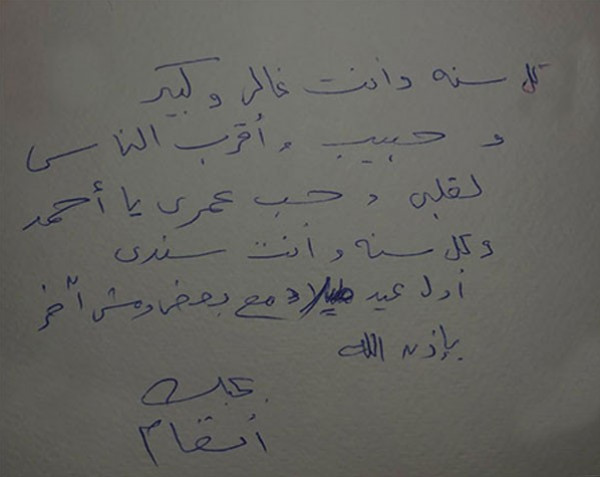 كل سنه وأنت غالى وكبير
و حبيب وأقرب الناس
لقلبى و حب عمرى يا أحمد
وكل سنه وأنت سندى
أول عيد ميلاد مع بعض ومش آخر
بإذن الله
بحبك
أنغام